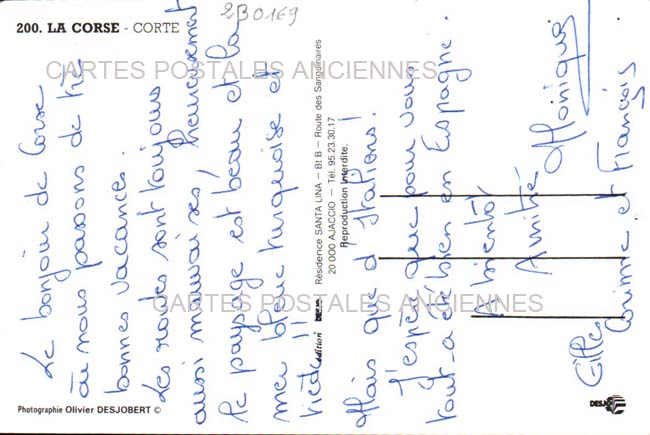 200. LA CORSE - CORTE
2B0169
CARTES POSTALES ANCIENNES
CARTES POSTALES ANCIENNES
Le bonjour de Corse
où nous passons de très
bonnes vacances.
Les routes sont toujours
aussi mauvaises, heureusement
le paysage est beau et la
mer bleue turquoise et
Mais que d'Italiens!
J'espère que pour vous
tout a été bien en Espagne.
A bientôt
Amitié
Monique
Gilles
Corinne et François
édition DESJO
Résidence SANTA LINA — Bt B — Route des Sanguinaires
20 000 AJACCIO — Tél. 95.23.30.17
Reproduction Interdite.
Photographie Olivier DESJOBERT ©
DESJO